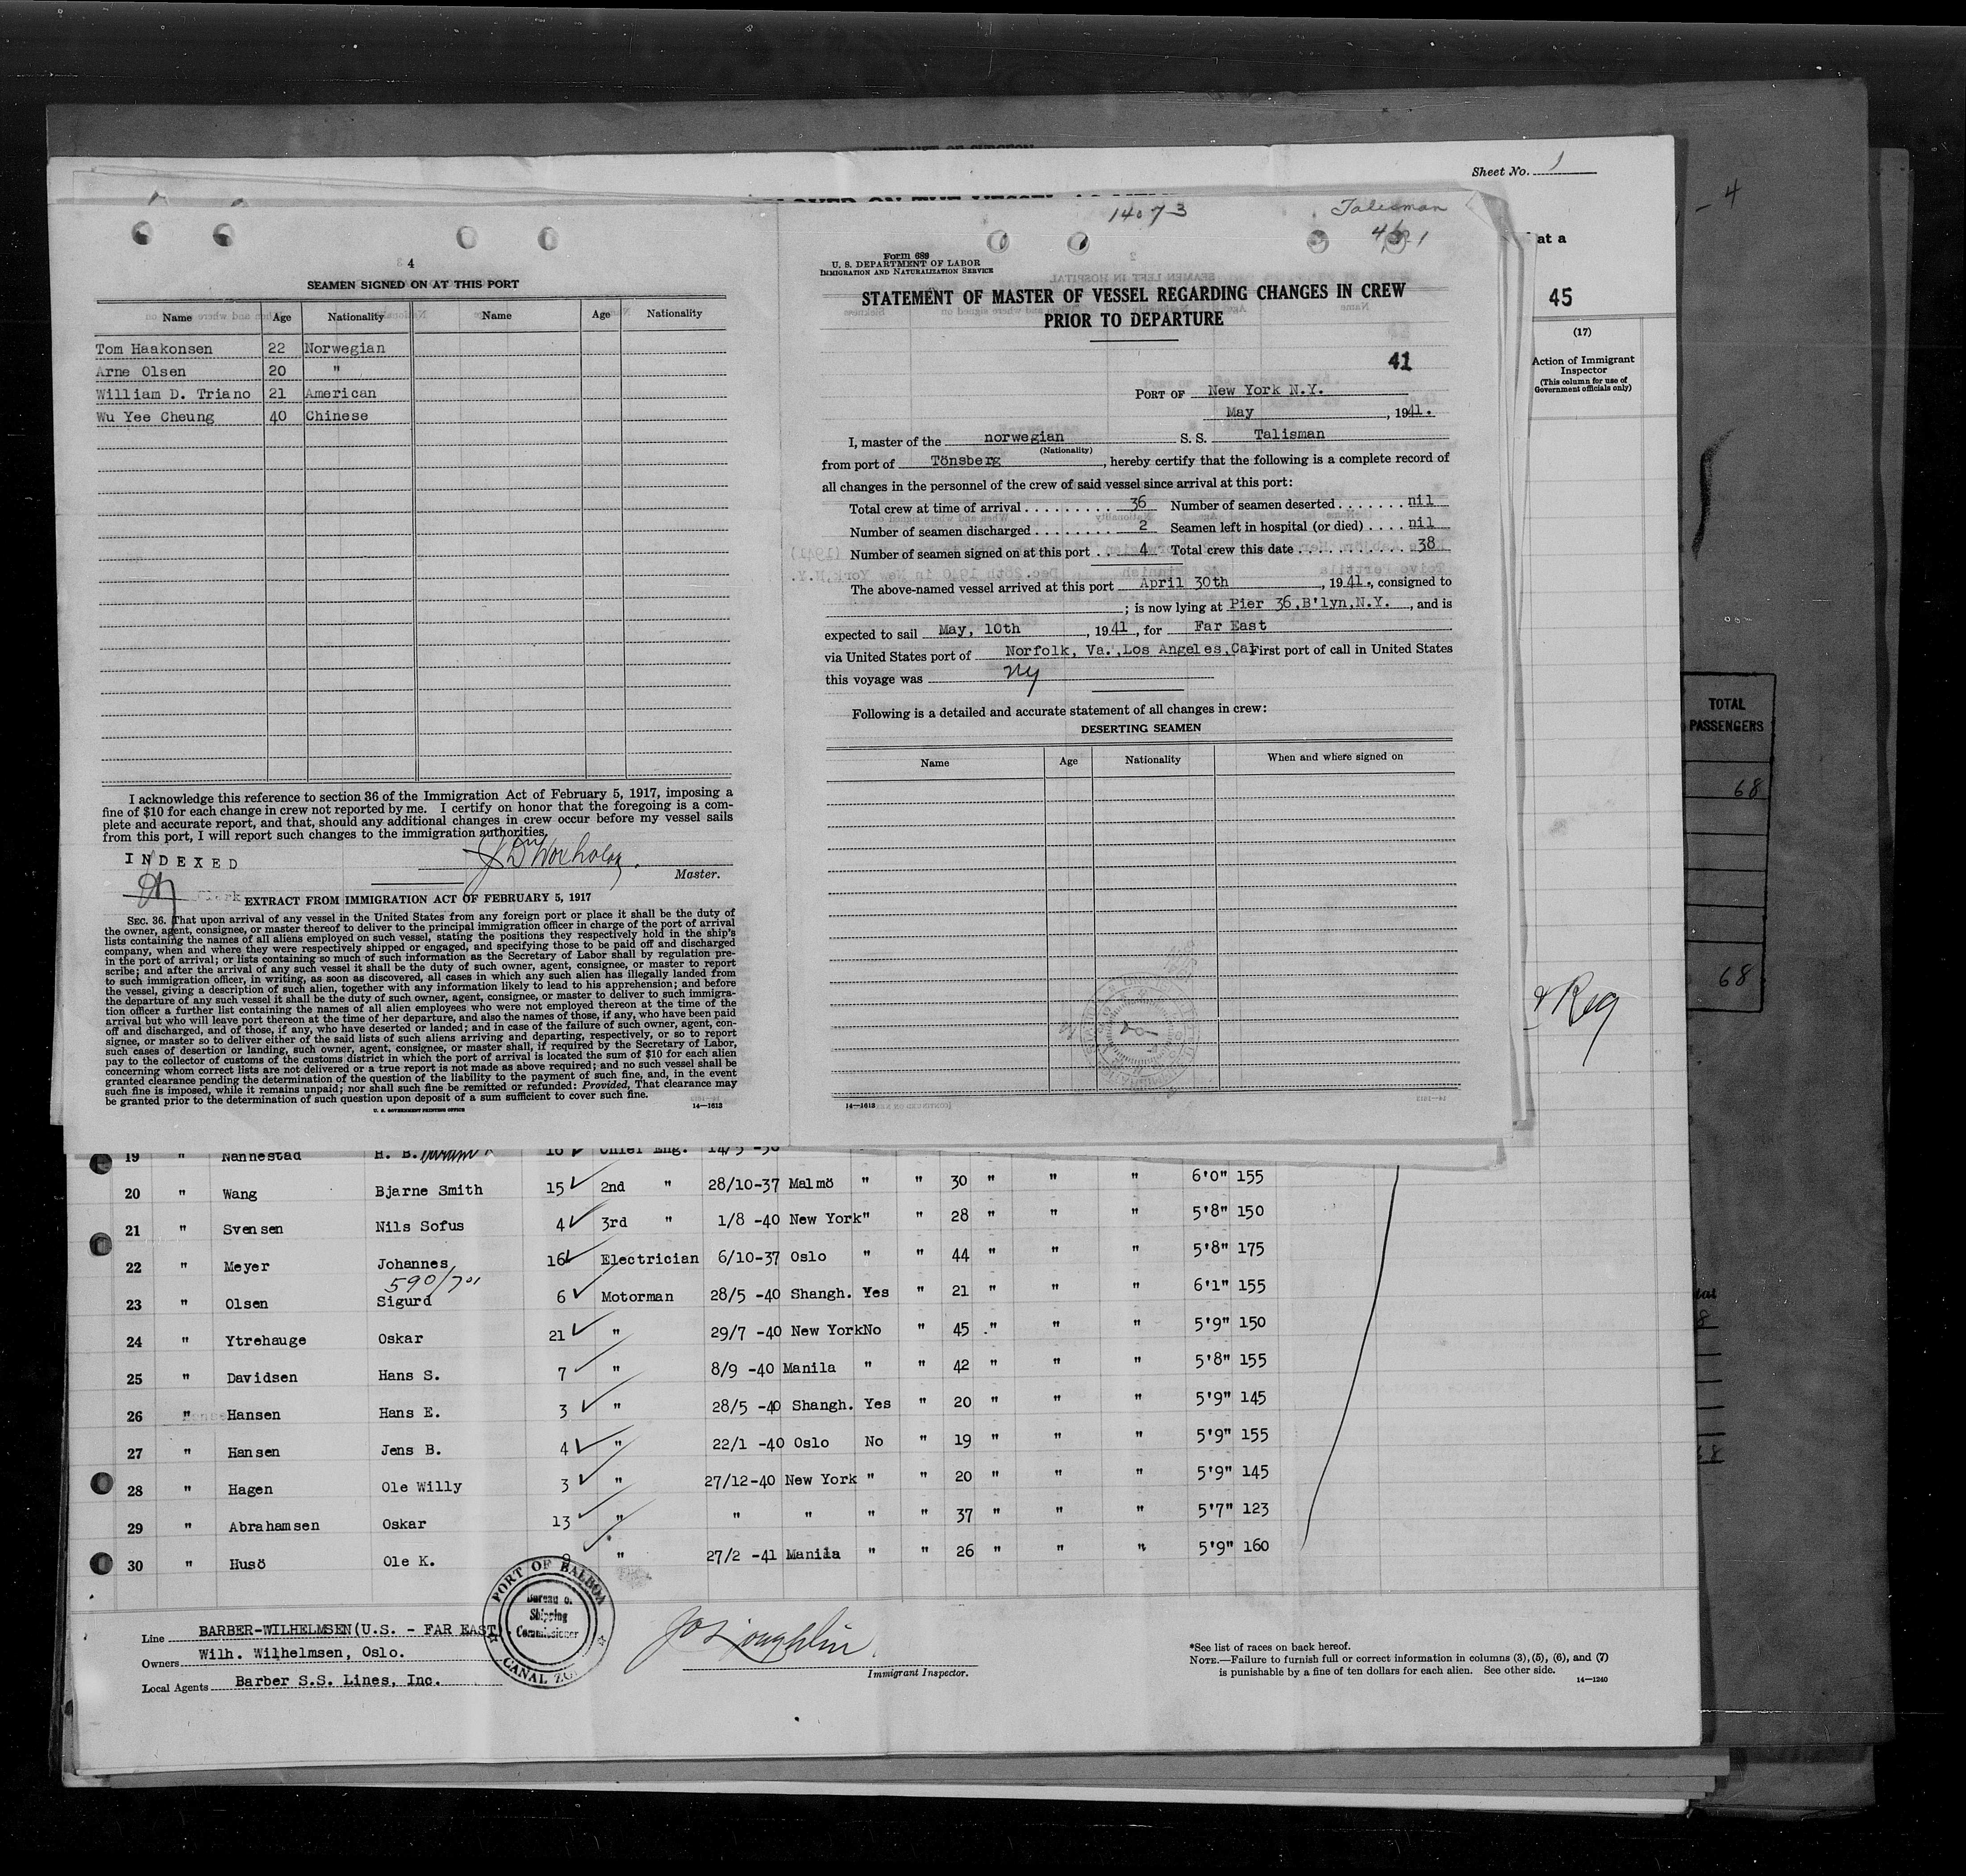 Sheet No. 1
at a
45
(17)
Action of Immigrant
Inspector
(This column for use of
Government officials only)
4
SEAMEN SIGNED ON AT THIS PORT
Name Age Nationality Name Age Nationality
Tom Haakonsen 22 Norwegian
Arne Olsen 20 "
William D. Triano 21 American
Wu Yee Cheung 40 Chinese
I acknowledge this reference to section 36 of the Immigration Act of February 5, 1917, imposing a
fine of $10 for each change in crew not reported by me. I certify on honor that the foregoing is a com-
plete and accurate report, and that, should any additional changes in crew occur before my vessel sails
from this port, I will report such changes to the immigration authorities.
INDEXED
Master.
Clerk
EXTRACT FROM IMMIGRATION ACT OF FEBRUARY 5, 1917
SEC. 36. That upon arrival of any vessel in the United States from any foreign port or place it shall be the duty of
the owner, agent, consignee, or master thereof to deliver to the principal immigration officer in charge of the port of arrival
lists containing the names of all aliens employed on such vessel, stating the positions they respectively hold in the ship's
company, when and where they were respectively shipped or engaged, and specifying those to be paid off and discharged
in the port of arrival; or lists containing so much of such information as the Secretary of Labor shall by regulation pre-
scribe; and after the arrival of any such vessel it shall be the duty of such owner, agent, consignee, or master to report
to such immigration officer, in writing, as soon as discovered, all cases in which any such alien has illegally landed from
the vessel, giving a description of such alien, together with any information likely to lead to his apprehension; and before
the departure of any such vessel it shall be the duty of such owner, agent, consignee, or master to deliver to such immigra-
tion officer a further list containing the names of all alien employees who were not employed thereon at the time of the
arrival but who will leave port thereon at the time of her departure, and also the names of those, if any, who have been paid
off and discharged, and of those, if any, who have deserted or landed; and in case of the failure of such owner, agent, con-
signee, or master so to deliver either of the said lists of such aliens arriving and departing, respectively, or so to report
such cases of desertion or landing, such owner, agent, consignee, or master shall, if required by the Secretary of Labor,
pay to the collector of customs of the customs district in which the port of arrival is located the sum of $10 for each alien
concerning whom correct lists are not delivered or a true report is not made as above required; and no such vessel shall be
granted clearance pending the determination of the question of the liability to the payment of such fine, and, in the event
such fine is imposed, while it remains unpaid; nor shall such fine be remitted or refunded: Provided, That clearance may
be granted prior to the determination of such question upon deposit of a sum sufficient to cover such fine.
U. S. GOVERNMENT PRINTING OFFICE 14—1613
14073
Talisman
Form 689
U. S. DEPARTMENT OF LABOR
IMMIGRATION AND NATURALIZATION SERVICE
STATEMENT OF MASTER OF VESSEL REGARDING CHANGES IN CREW
PRIOR TO DEPARTURE
41
PORT OF New York N.Y.
May, 1941.
I, master of the norwegian S. S. Talisman
(Nationality)
from port of Tönsberg, hereby certify that the following is a complete record of
all changes in the personnel of the crew of said vessel since arrival at this port:
Total crew at time of arrival 36 Number of seamen deserted nil
Number of seamen discharged 2 Seamen left in hospital (or died) nil
Number of seamen signed on at this port 4 Total crew this date 38
The above-named vessel arrived at this port April 30th, 1941., consigned to
; is now lying at Pier 36,B'lyn,N.Y., and is
expected to sail May, 10th, 1941, for Far East
via United States port of Norfolk, Va.,Los Angeles,Cal First port of call in United States
this voyage was Ny
Following is a detailed and accurate statement of all changes in crew:
DESERTING SEAMEN
Name Age Nationality When and where signed on
14—1613
TOTAL
PASSENGERS
68
68
& Reg
19 " Nannestad H. B. 16 Chief Eng.
20 " Wang Bjarne Smith 15 2nd " 28/10-37 Malmö " " 30 " " " 6'0" 155
21 " Svensen Nils Sofus 4 3rd " 1/8 -40 New York " " 28 " " " 5'8" 150
22 " Meyer Johannes 16 Electrician 6/10-37 Oslo " " 44 " " " 5'8" 175
590/701
23 " Olsen Sigurd 6 Motorman 28/5 -40 Shangh. Yes " 21 " " " 6'1" 155
24 " Ytrehauge Oskar 21 " 29/7 -40 New York No " 45 " " " 5'9" 150
25 " Davidsen Hans S. 7 " 8/9 -40 Manila " " 42 " " " 5'8" 155
26 " Hansen Hans E. 3 " 28/5 -40 Shangh. Yes " 20 " " " 5'9" 145
27 " Hansen Jens B. 4 " 22/1 -40 Oslo No " 19 " " " 5'9" 155
28 " Hagen Ole Willy 3 " 27/12-40 New York " " 20 " " " 5'9" 145
29 " Abrahamsen Oskar 13 " " " " " 37 " " " 5'7" 123
30 " Husö Ole K. " 27/2 -41 Manila " " 26 " " " 5'9" 160
PORT OF BALBOA
Bureau o.
Shipping
Commissioner
CANAL ZO
Line BARBER-WILHELMSEN(U.S. - FAR EAST
Owners Wilh. Wilhelmsen, Oslo.
Local Agents Barber S.S. Lines, Inc.
Immigrant Inspector.
*See list of races on back hereof.
NOTE.—Failure to furnish full or correct information in columns (3), (5), (6), and (7)
is punishable by a fine of ten dollars for each alien. See other side.
14—1240